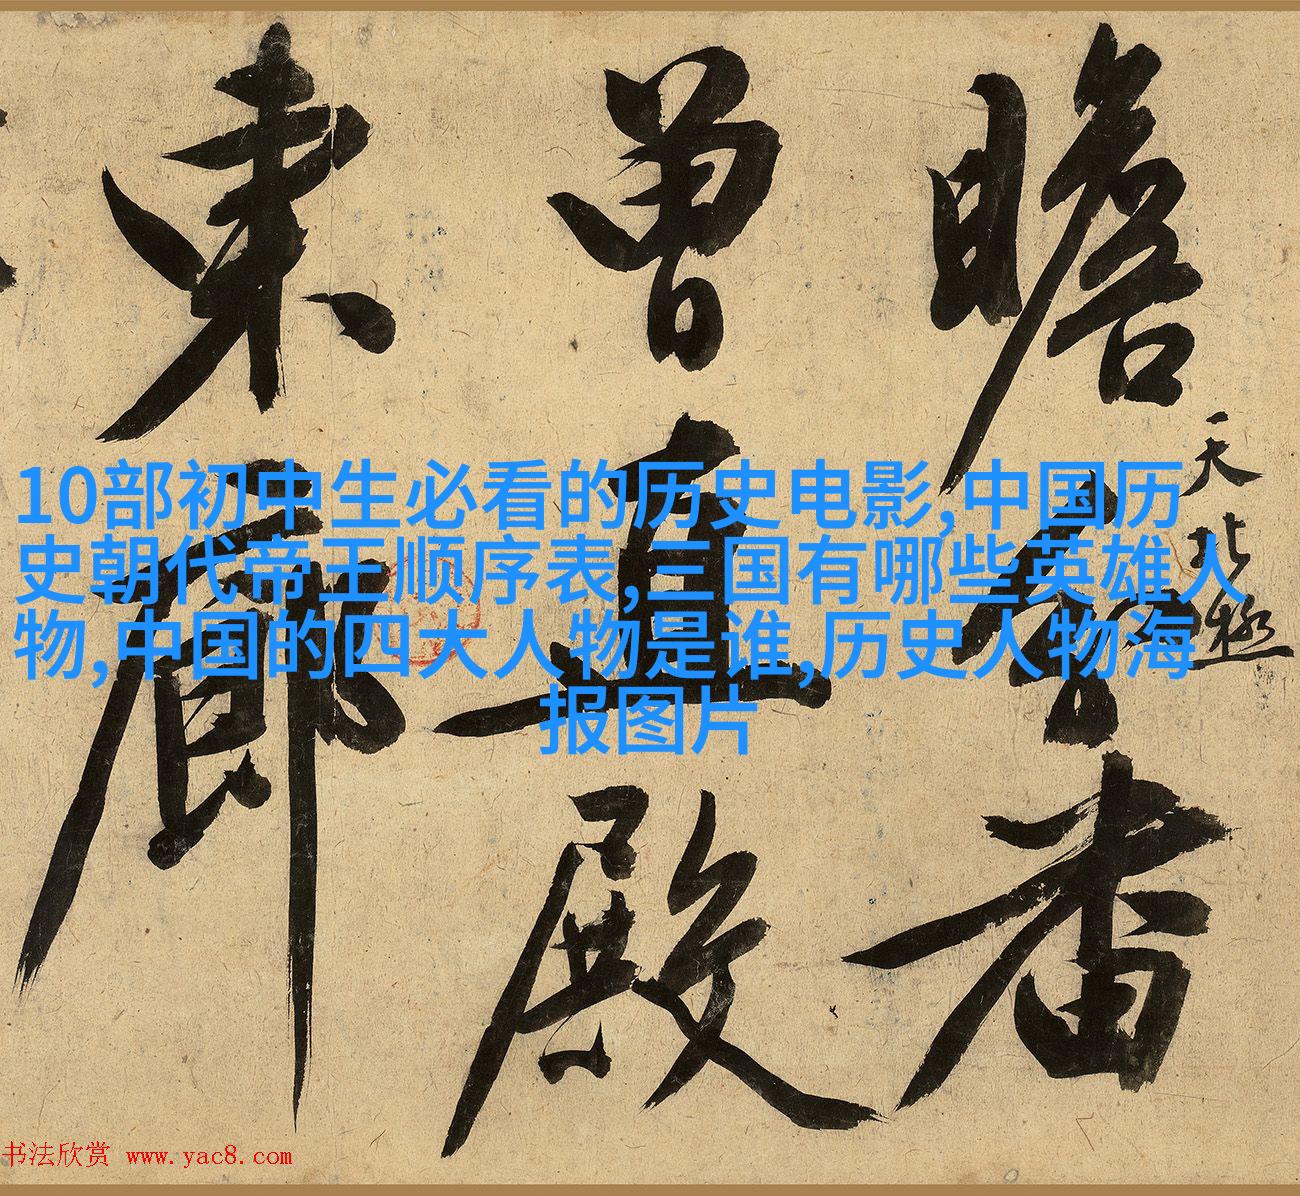 10部初中生必看的历史电影,中国历
史朝代帝王顺序表,三国有哪些英雄人
物,中国的四大人物是谁,历史人物海
报图片
瞻
番
天北极
曾直殿
東廊
书法欣赏 www.yac8.com